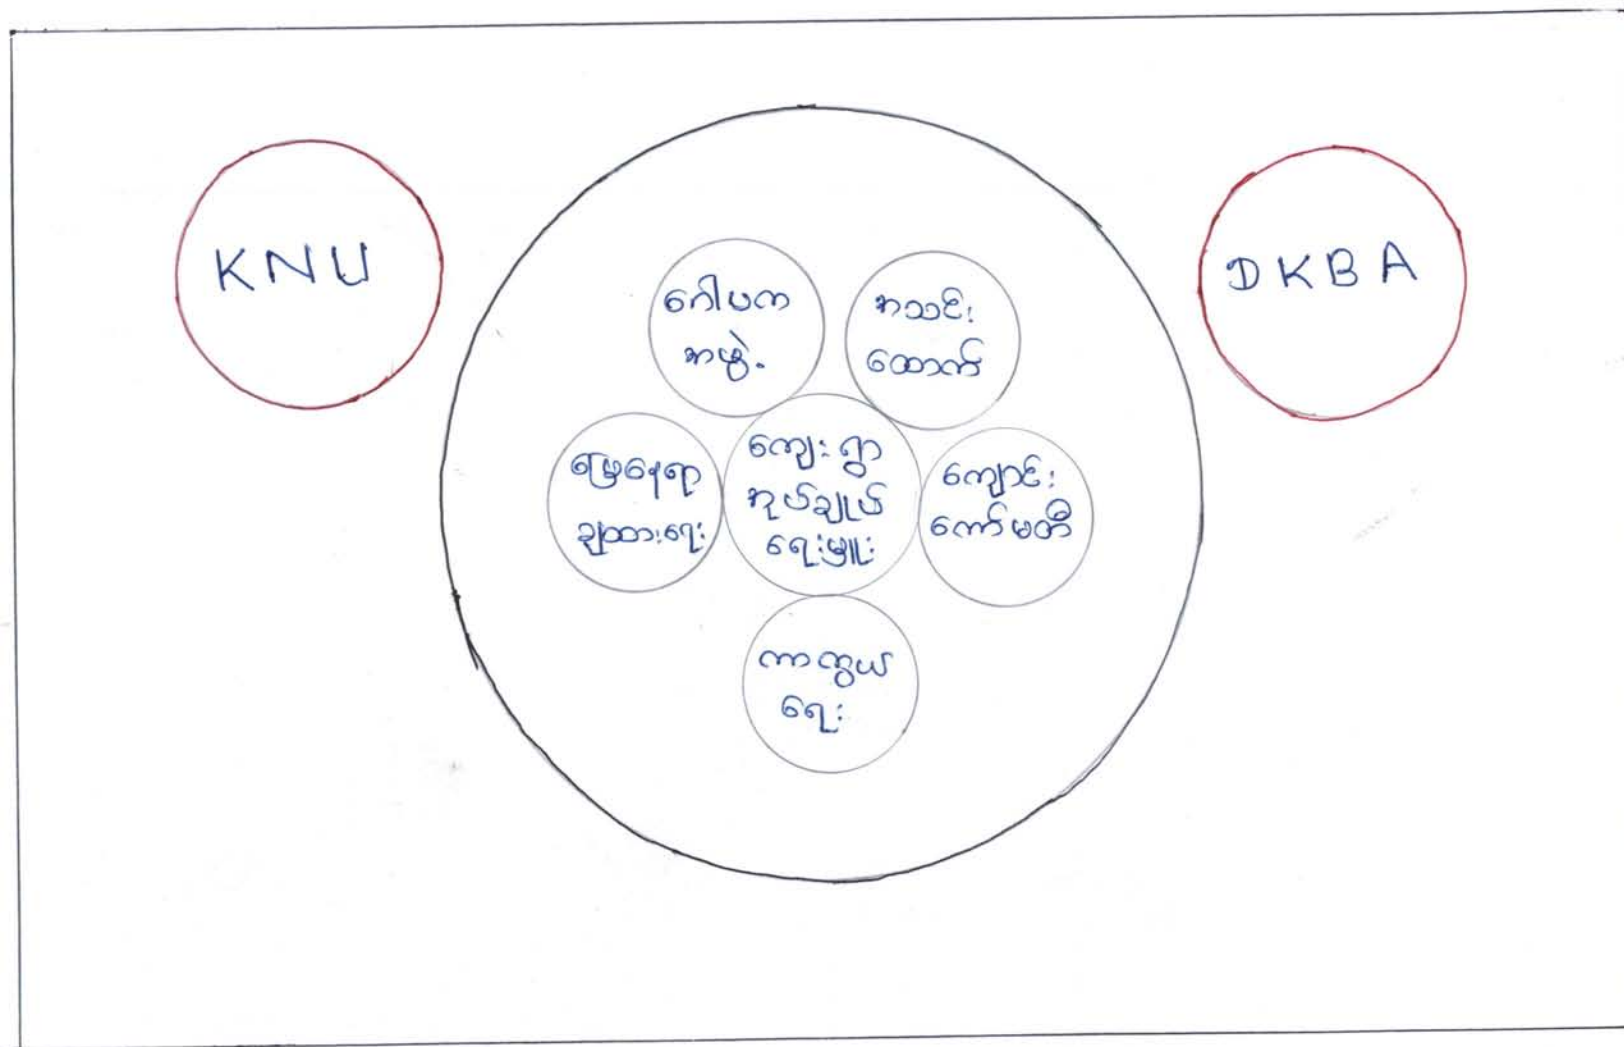 KNU
DKBA
ဂေါပက
အဖွဲ့
အသင်း
ထောက်
မြေနေရာ
ချထားရေး
ကျေးရွာ
အုပ်ချုပ်
ရေးမှူး
ကျောင်း
ကော်မတီ
ကာကွယ်
ရေး